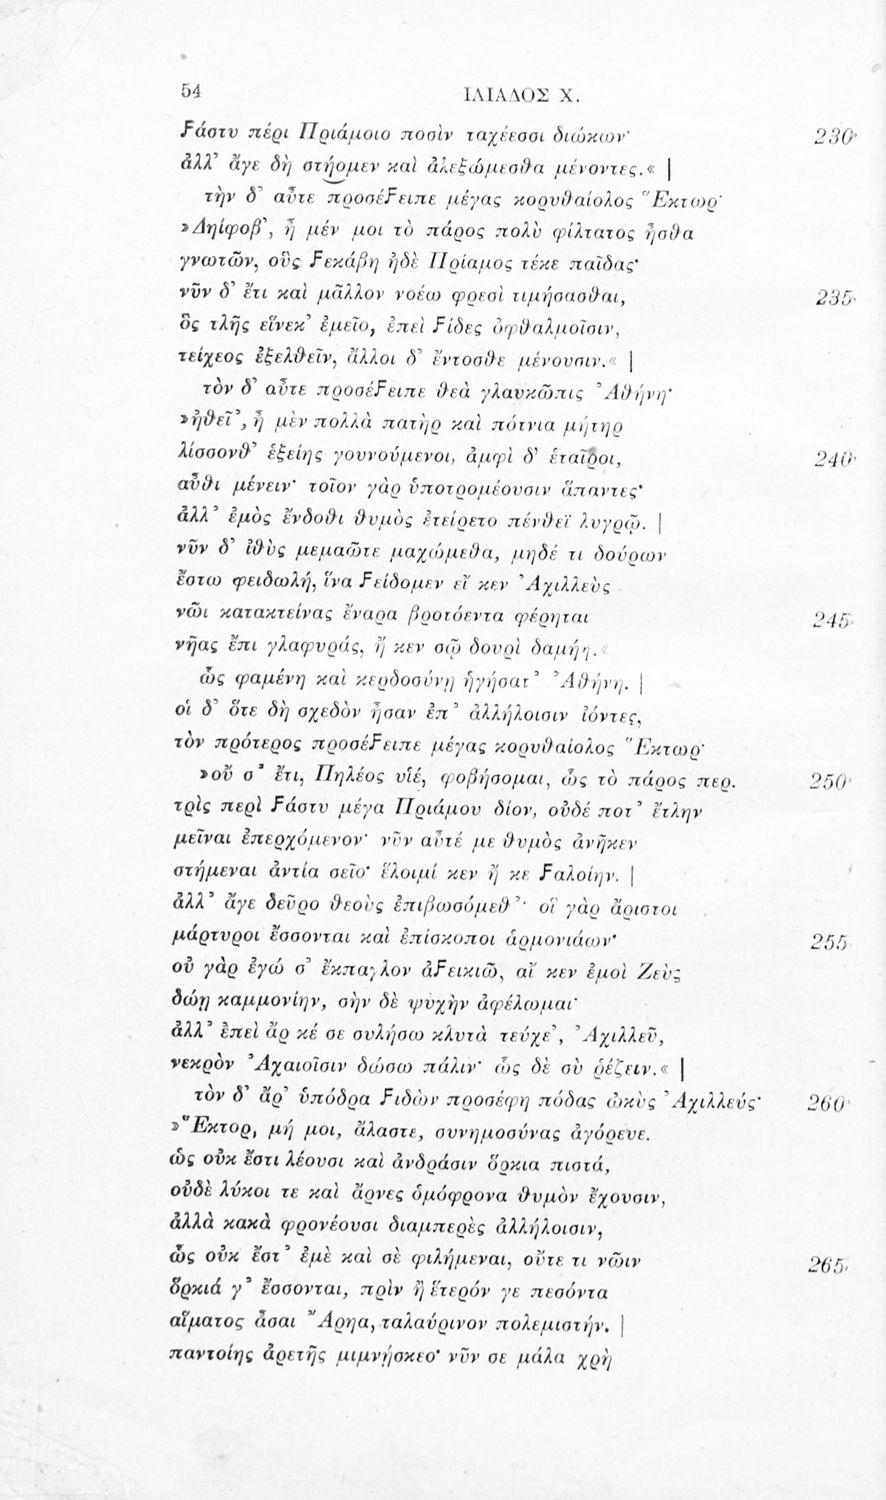 54 ΙΛΙΑΔΟΣ Χ.
Ϝάστυ πέρι Πριάμοιο ποσὶν ταχέεσσι διώκων· 230
ἀλλ’ ἄγε δὴ στήομεν καὶ ἀλεξώμεσθα μένοντες.« |
τὴν δ’ αὖτε προσέϜειπε μέγας κορυθαίολος Ἕκτωρ·
»Δηίφοβ’, ἦ μέν μοι τὸ πάρος πολὺ φίλτατος ἦσθα
γνωτῶν, οὓς Ϝεκάβη ἠδὲ Πρίαμος τέκε παῖδας·
νῦν δ’ ἔτι καὶ μᾶλλον νοέω φρεσὶ τιμήσασθαι, 235
ὃς τλῆς εἵνεκ’ ἐμεῖο, ἐπεὶ Ϝίδες ὀφθαλμοῖσιν,
τείχεος ἐξελθεῖν, ἄλλοι δ’ ἔντοσθε μένουσιν.« |
τὸν δ’ αὖτε προσέϜειπε θεὰ γλαυκῶπις Ἀθήνη·
»ἠθεῖ’, ἦ μὲν πολλὰ πατὴρ καὶ πότνια μήτηρ
λίσσονθ’ ἑξείης γουνούμενοι, ἀμφὶ δ’ ἑταῖροι, 240
αὖθι μένειν· τοῖον γὰρ ὑποτρομέουσιν ἅπαντες·
ἀλλ’ ἐμὸς ἔνδοθι θυμὸς ἐτείρετο πένθεϊ λυγρῷ. |
νῦν δ’ ἰθὺς μεμαῶτε μαχώμεθα, μηδέ τι δούρων
ἔστω φειδωλή, ἵνα Ϝείδομεν εἴ κεν Ἀχιλλεὺς
νῶι κατακτείνας ἔναρα βροτόεντα φέρηται 245
νῆας ἔπι γλαφυράς, ἤ κεν σῷ δουρὶ δαμήῃ.«
ὣς φαμένη καὶ κερδοσύνῃ ἡγήσατ’ Ἀθήνη. |
οἱ δ’ ὅτε δὴ σχεδὸν ἦσαν ἐπ’ ἀλλήλοισιν ἰόντες,
τὸν πρότερος προσέϜειπε μέγας κορυθαίολος Ἕκτωρ·
»οὔ σ’ ἔτι, Πηλέος υἱέ, φοβήσομαι, ὡς τὸ πάρος περ. 250
τρὶς περὶ Ϝάστυ μέγα Πριάμου δίον, οὐδέ ποτ’ ἔτλην
μεῖναι ἐπερχόμενον· νῦν αὖτέ με θυμὸς ἀνῆκεν
στήμεναι ἀντία σεῖο· ἕλοιμί κεν ἤ κε Ϝαλοίην. |
ἀλλ’ ἄγε δεῦρο θεοὺς ἐπιβωσόμεθ’· οἳ γὰρ ἄριστοι
μάρτυροι ἔσσονται καὶ ἐπίσκοποι ἁρμονιάων· 255
οὐ γὰρ ἐγώ σ’ ἔκπαγλον ἀϜεικιῶ, αἴ κεν ἐμοὶ Ζεὺς
δώῃ καμμονίην, σὴν δὲ ψυχὴν ἀφέλωμαι·
ἀλλ’ ἐπεὶ ἄρ κέ σε συλήσω κλυτὰ τεύχε’, Ἀχιλλεῦ,
νεκρὸν Ἀχαιοῖσιν δώσω πάλιν· ὣς δὲ σὺ ῥέζειν.« |
τὸν δ’ ἄρ’ ὑπόδρα Ϝιδὼν προσέφη πόδας ὠκὺς Ἀχιλλεύς· 260
»Ἕκτορ, μή μοι, ἄλαστε, συνημοσύνας ἀγόρευε.
ὡς οὐκ ἔστι λέουσι καὶ ἀνδράσιν ὅρκια πιστά,
οὐδὲ λύκοι τε καὶ ἄρνες ὁμόφρονα θυμὸν ἔχουσιν,
ἀλλὰ κακὰ φρονέουσι διαμπερὲς ἀλλήλοισιν,
ὣς οὐκ ἔστ’ ἐμὲ καὶ σὲ φιλήμεναι, οὔτε τι νῶιν 265
ὅρκιά γ’ ἔσσονται, πρὶν ἢ ἕτερόν γε πεσόντα
αἵματος ἆσαι Ἄρηα, ταλαύρινον πολεμιστήν. |
παντοίης ἀρετῆς μιμνήσκεο· νῦν σε μάλα χρὴ